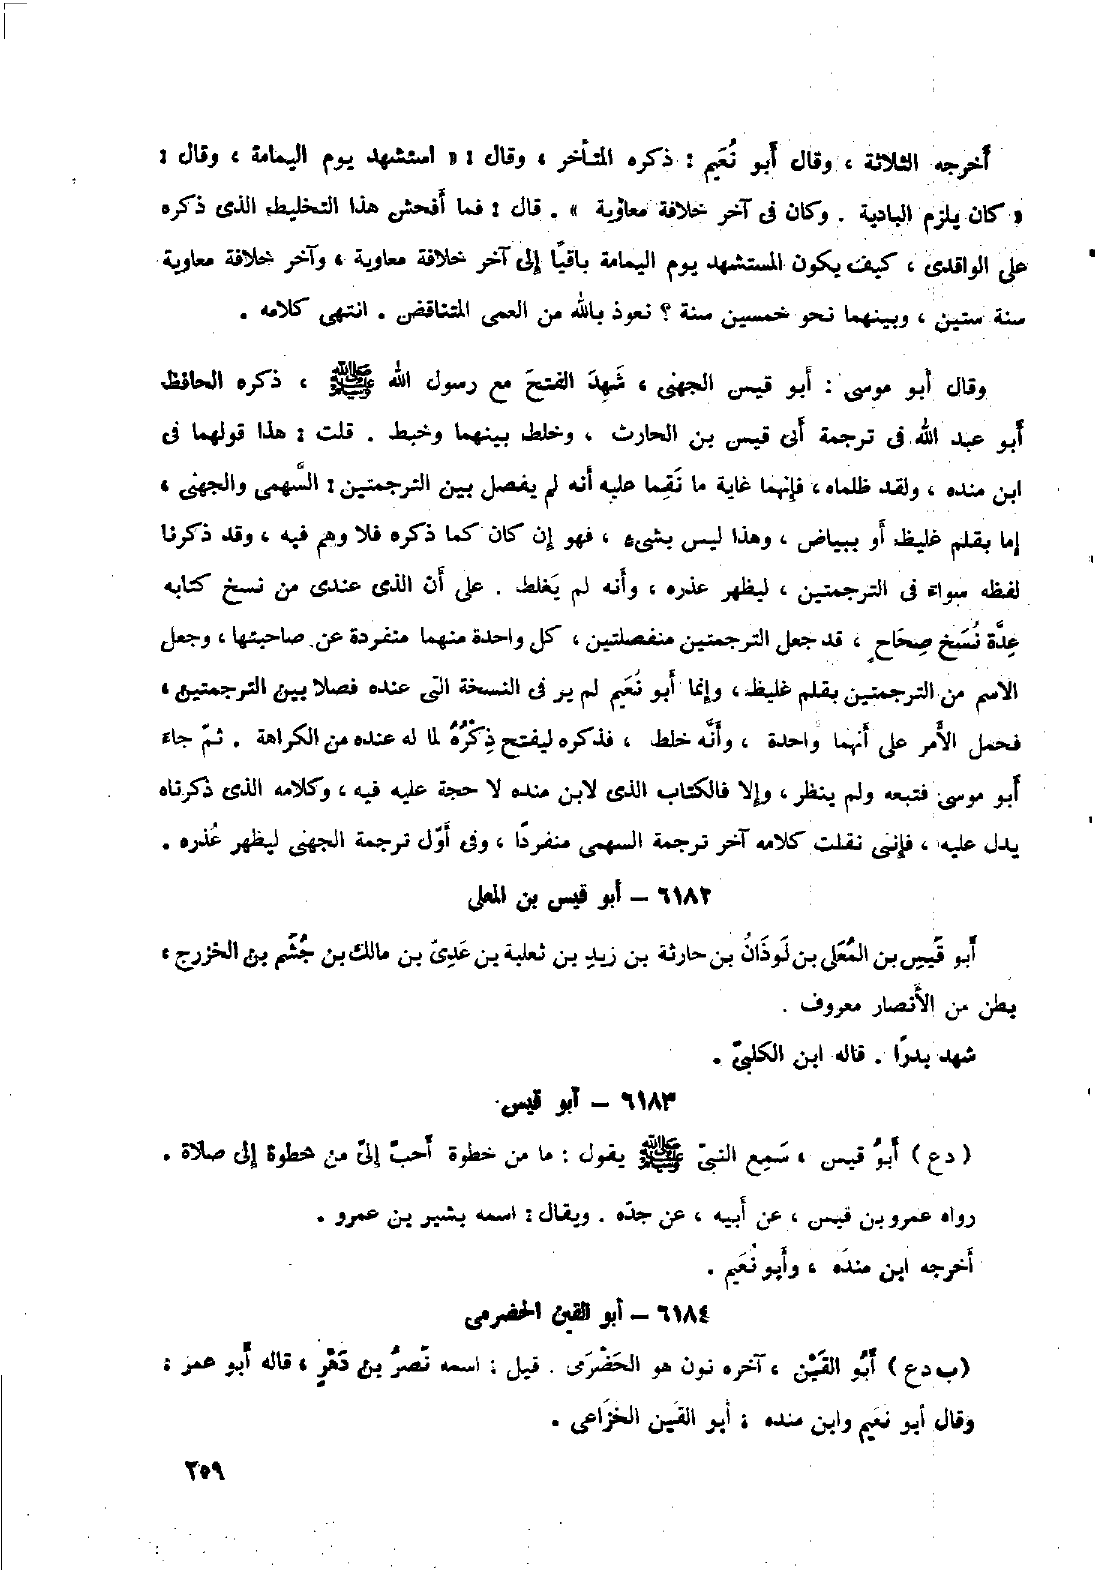 أخرجه الثلاثة ، وقال أبو نُعَيم : ذكره المتأخر ، وقال : « استشهد يوم اليمامة ، وقال :
« كان يلزم البادية . وكان فى آخر خلافة معاوية » . قال : فما أفحش هذا التخليط الذى ذكره
على الواقدى ، كيف يكون المستشهد يوم اليمامة باقيًا إلى آخر خلافة معاوية ، وآخر خلافة معاوية
سنة ستين ، وبينهما نحو خمسين سنة ؟ نعوذ بالله من العمى المتناقض . انتهى كلامه .
وقال أبو موسى : أبو قيس الجهنى ، شَهِدَ الفتحَ مع رسول الله ﷺ ، ذكره الحافظ
أبو عبد الله فى ترجمة أبى قيس بن الحارث ، وخلط بينهما وخبط . قلت : هذا قولهما فى
ابن منده ، ولقد ظلماه ، فإنهما غاية ما نَقِما عليه أنه لم يفصل بين الترجمتين : السَّهمى والجهنى ،
إما بقلم غليظ أو ببياض ، وهذا ليس بشىء ، فهو إن كان كما ذكره فلا وهم فيه ، وقد ذكرنا
لفظه سواء فى الترجمتين ، ليظهر عذره ، وأنه لم يَغلط . على أن الذى عندى من نسخ كتابه
عِدَّة نُسَخ صِحَاحٍ ، قد جعل الترجمتين منفصلتين ، كل واحدة منهما منفردة عن صاحبتها ، وجعل
الاسم من الترجمتين بقلم غليظ ، وإنما أبو نُعَيم لم ير فى النسخة التى عنده فصلا بين الترجمتين ،
فحمل الأمر على أنهما واحدة ، وأنَّه خلط ، فذكره ليفتح ذِكْرُهُ لما له عنده من الكراهة . ثمّ جاء
أبو موسى فتبعه ولم ينظر ، وإلا فالكتاب الذى لابن منده لا حجة عليه فيه ، وكلامه الذى ذكرناه
يدل عليه ، فإننى نقلت كلامه آخر ترجمة السهمى منفردًا ، وفى أوّل ترجمة الجهنى ليظهر عُذره .
٦١٨٢ – أبو قيس بن المعلى
أبو قَيس بن المُعَلى بن لَوذَانُ بن حارثة بن زيد بن ثعلبة بن عَدِىّ بن مالك بن جُشَم بن الخزرج ،
بطن من الأنصار معروف .
شهد بدرًا . قاله ابن الكلبىّ .
٦١٨٣ – أبو قيس
( دع ) أَبُو قيس ، سَمِع النبىّ ﷺ يقول : ما من خطوة أحبّ إلىّ من خطوة إلى صلاة .
رواه عمرو بن قيس ، عن أبيه ، عن جدّه . ويقال : اسمه بشير بن عمرو .
أخرجه ابن مندَه ، وأبو نُعَيم .
٦١٨٤ – أبو القين الحضرمى
( ب دع ) أَبُو القَيْن ، آخره نون هو الحَضْرَمى . قيل : اسمه نَصرُ بن دَهْرٍ ، قاله أبو عمر :
وقال أبو نعَيم وابن منده : أبو القَين الخزَاعى .
٢٥٩